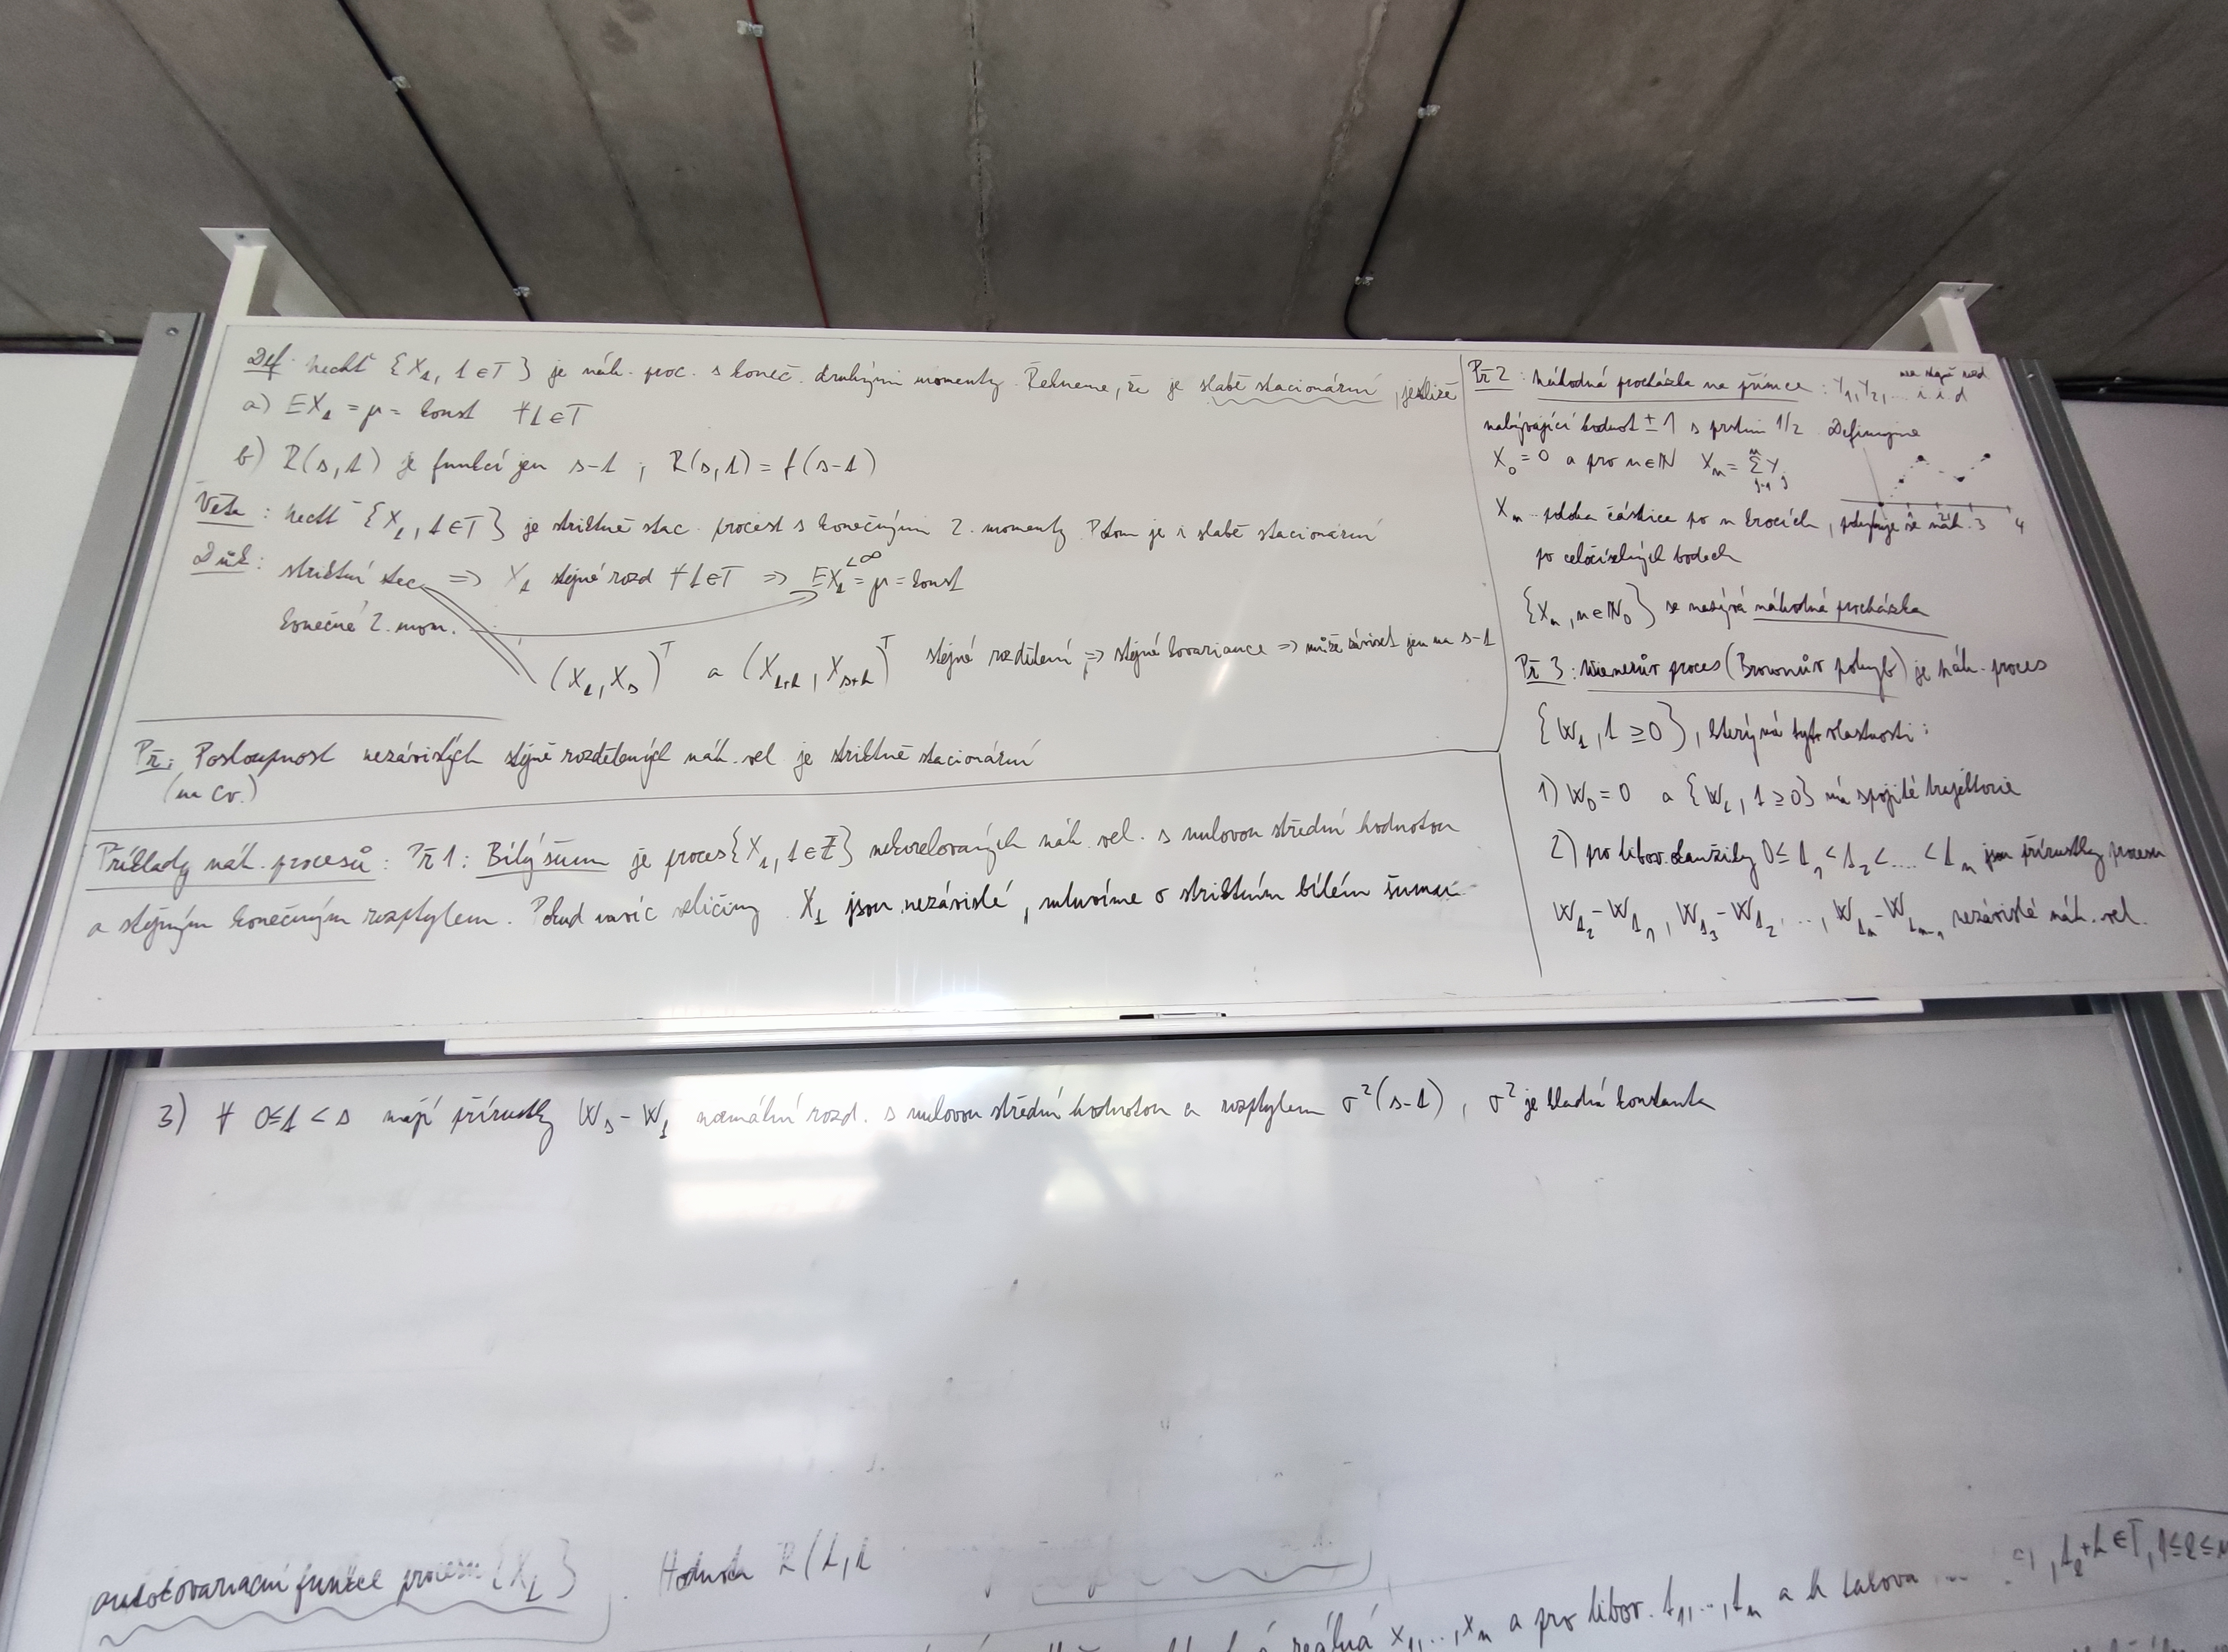 Def: Nechť {X_t, t∈T} je náh. proc. s koneč. druhými momenty. Řekneme, že je slabě stacionární, jestliže
a) EX_t = μ = konst ∀t∈T
b) R(s,t) je funkcí jen s-t ; R(s,t) = f(s-t)
Věta: Nechť {X_t, t∈T} je striktně stac. proces s konečným 2. momenty. Potom je i slabě stacionární
Důk: striktní stac. ⇒ X_t stejné rozd ∀t∈T ⇒ EX_t = μ = konst
<∞
konečné 2. mom.
(X_t, X_s)^T a (X_{t+h}, X_{s+h})^T stejné rozdělení ⇒ stejné kovariance ⇒ může záviset jen na s-t
Př: Posloupnost nezávislých stejně rozdělených náh. vel je striktně stacionární
(na cv.)
Příklady náh. procesů: Př 1: Bílý šum je proces {X_t, t∈Z} nekorelovaných náh. vel. s nulovou střední hodnotou
a stejným konečným rozptylem. Pokud navíc veličiny X_t jsou nezávislé, mluvíme o striktním bílém šumu
Př 2: Náhodná procházka na přímce: Y_1, Y_2, ... i i d
nez stejně rozd
nabývající hodnot ±1 s prstmi 1/2. Definujme
X_0 = 0 a pro n∈N X_n = Σ_{j=1}^n Y_j
1 2 3 4
X_n poloha částice po n krocích, pohybuje se náh.
po celočíselných bodech
{X_n, n∈N_0} se nazývá náhodná procházka
Př 3: Wienerův proces (Brownův pohyb) je náh. proces
{W_t, t ≥ 0}, který má tyto vlastnosti:
1) W_0 = 0 a {W_t, t ≥ 0} má spojité trajektorie
2) pro libov. okamžiky 0 ≤ t_1 < t_2 < .... < t_n jsou přírustky procesu
W_{t_2} - W_{t_1}, W_{t_3} - W_{t_2}, ..., W_{t_n} - W_{t_{n-1}} nezávislé náh. vel.
3) ∀ 0≤t < s mají přírustky W_s - W_t normální rozd. s nulovou střední hodnotou a rozptylem σ²(s-t), σ² je kladná konstanta
autokovarianční funkce procesu {X_t}. Hodnota R(t,t
t_l+h∈T, 1≤l≤n
reálná x_1,...,x_n a pro libov. t_1,...,t_n a h taková